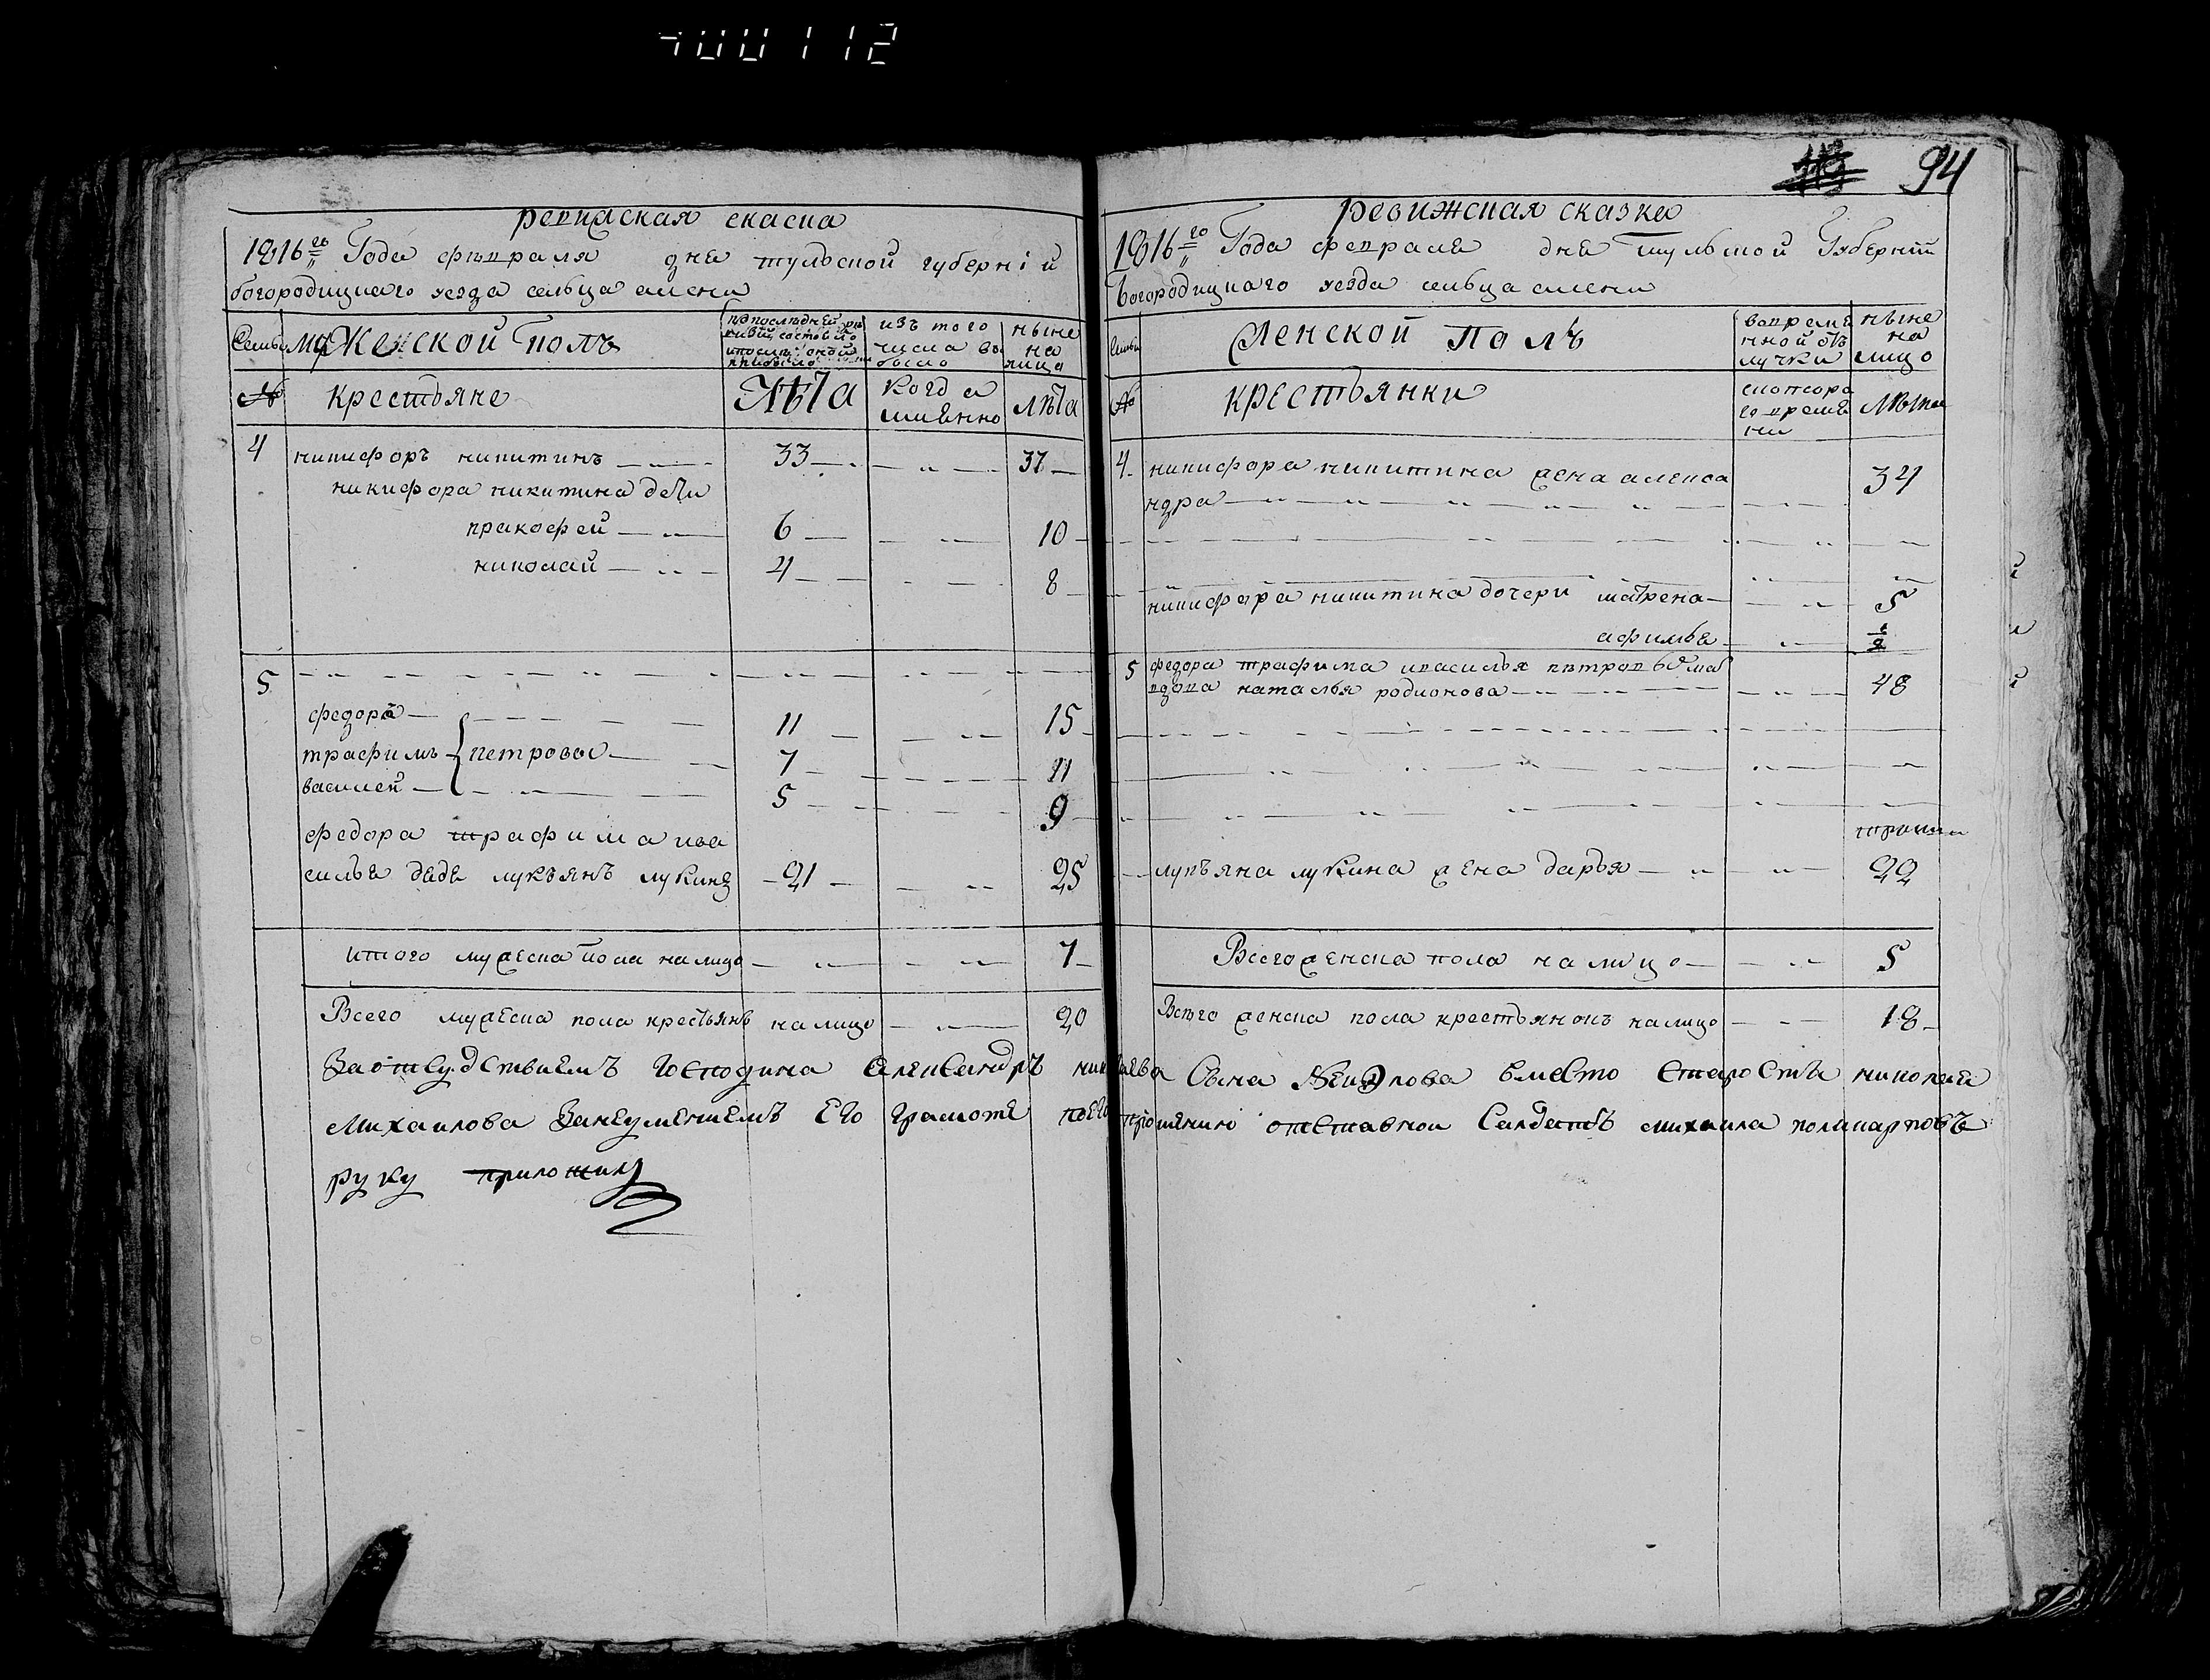 94
ревижская скаска
1816го Года февраля дня тульской губернiй
богородицкаго уезда сельца
Семьи
мужеской полъ
изъ того числа выбыло
ныне на лицо
№
крестьяне
лѣта
когда именно
лѣта
4 никифоръ никитинъ 33 37
никифора никитина дети
пракофей 6 10
николай 4 8
5
федоръ 11 15
трафимъ петровы 7 11
василей 5 9
федора трафима ива
силья дядя лукъянъ лукинъ 21 25
итого мужеска пола налицо 7
Всего мужеска пола крестьянъ налицо 20
ревижская сказка
1816го Года февраля дня тульской Губернiи
Богородицкаго уезда сельца
Семьи
женской полъ
вовременной отлучки
ныне на лицо
№
крестьянки
скотораго времени
лѣта
4 никифора никитина жена алекса
ндра 34
никифора никитина дочери матрена 5
афимья
5 федора трафима ивасилья петровыхъ
вдова наталья родионова 48
лукъяна лукина жена дарья 22
Всего женска пола на лицо 5
Всего женска пола крестьянокъ налицо 18
Заотсудствиемъ Господина Александръ Сына вместо Старосты николая
Михаилова Занеумениемъ Его грамоте поего прошению отставной Салдатъ михаила поликарповъ
руку приложилъ